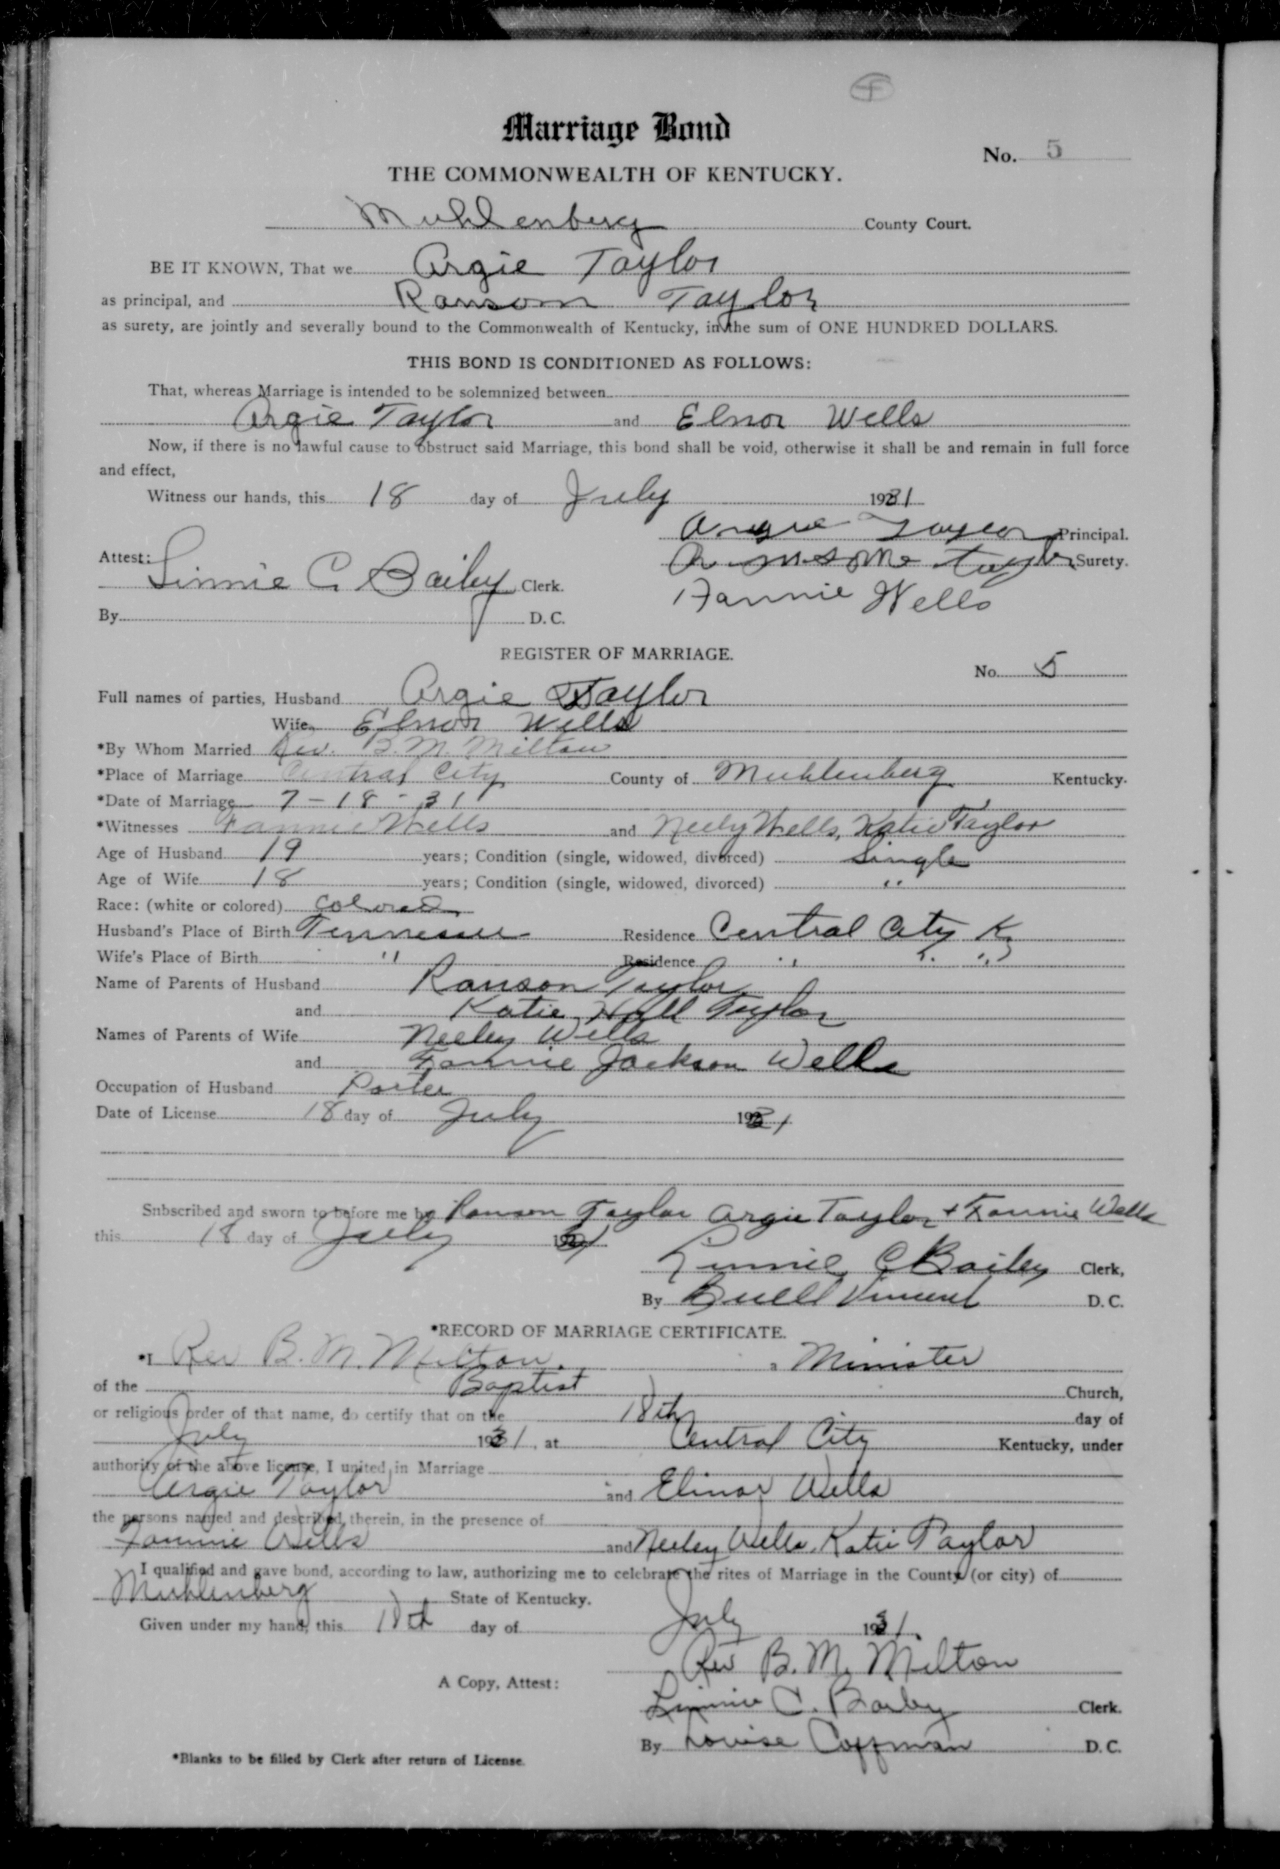 F
Marriage Bond
No. 5
THE COMMONWEALTH OF KENTUCKY.
Muhlenberg County Court.
BE IT KNOWN, That we Argie Taylor
as principal, and Ransom Taylor
as surety, are jointly and severally bound to the Commonwealth of Kentucky, in the sum of ONE HUNDRED DOLLARS.
THIS BOND IS CONDITIONED AS FOLLOWS:
That, whereas Marriage is intended to be solemnized between
Argie Taylor and Elnor Wells
Now, if there is no lawful cause to obstruct said Marriage, this bond shall be void, otherwise it shall be and remain in full force
and effect,
Witness our hands, this 18 day of July 1931
Argie Taylor Principal.
Attest: Ransome Taylor Surety.
Linnie C. Bailey Clerk.
Fannie Wells
By D. C.
REGISTER OF MARRIAGE.
No. 5
Full names of parties, Husband Argie Taylor
Wife, Elnor Wells
*By Whom Married Rev. B. M. Milton
*Place of Marriage Central City County of Muhlenberg Kentucky.
*Date of Marriage 7-18-31
*Witnesses Fannie Wells and Neely Wells, Katie Taylor
Age of Husband 19 years; Condition (single, widowed, divorced) Single
Age of Wife 18 years; Condition (single, widowed, divorced) "
Race: (white or colored) Colored
Husband's Place of Birth Tennessee Residence Central City Ky
Wife's Place of Birth " Residence " " "
Name of Parents of Husband Ranson Taylor
and Katie Hall Taylor
Names of Parents of Wife Neeley Wells
and Fannie Jackson Wells
Occupation of Husband Porter
Date of License 18 day of July 1931
Snbscribed and sworn to before me by Ranson Taylor Argie Taylor + Fannie Wells
this 18 day of July 1931
Linnie C Bailey Clerk,
By Buell Vincent D. C.
*RECORD OF MARRIAGE CERTIFICATE.
*I Rev B. M. Milton, a Minister
of the Baptist Church,
or religious order of that name, do certify that on the 18th day of
July 1931, at Central City Kentucky, under
authority of the above license, I united in Marriage
Argie Taylor and Elinor Wells
the persons named and described therein, in the presence of
Fannie Wells and Neeley Wells, Katie Taylor
I qualified and gave bond, according to law, authorizing me to celebrate the rites of Marriage in the County (or city) of
Muhlenberg State of Kentucky.
Given under my hand, this 18th day of July 1931.
Rev B. M. Milton
A Copy, Attest:
Linnie C. Bailey Clerk.
By Louise Coffman D. C.
*Blanks to be filled by Clerk after return of License.